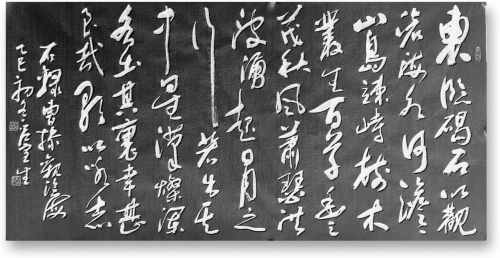 東臨碣石以觀
滄海水何澹澹
山島竦峙樹木
叢生百草豐
茂秋風蕭瑟洪
波湧起日月之
行若出其
中星漢燦爛
若出其裏幸甚
至哉歌以詠志
右録曹操觀滄海
乙巳初冬